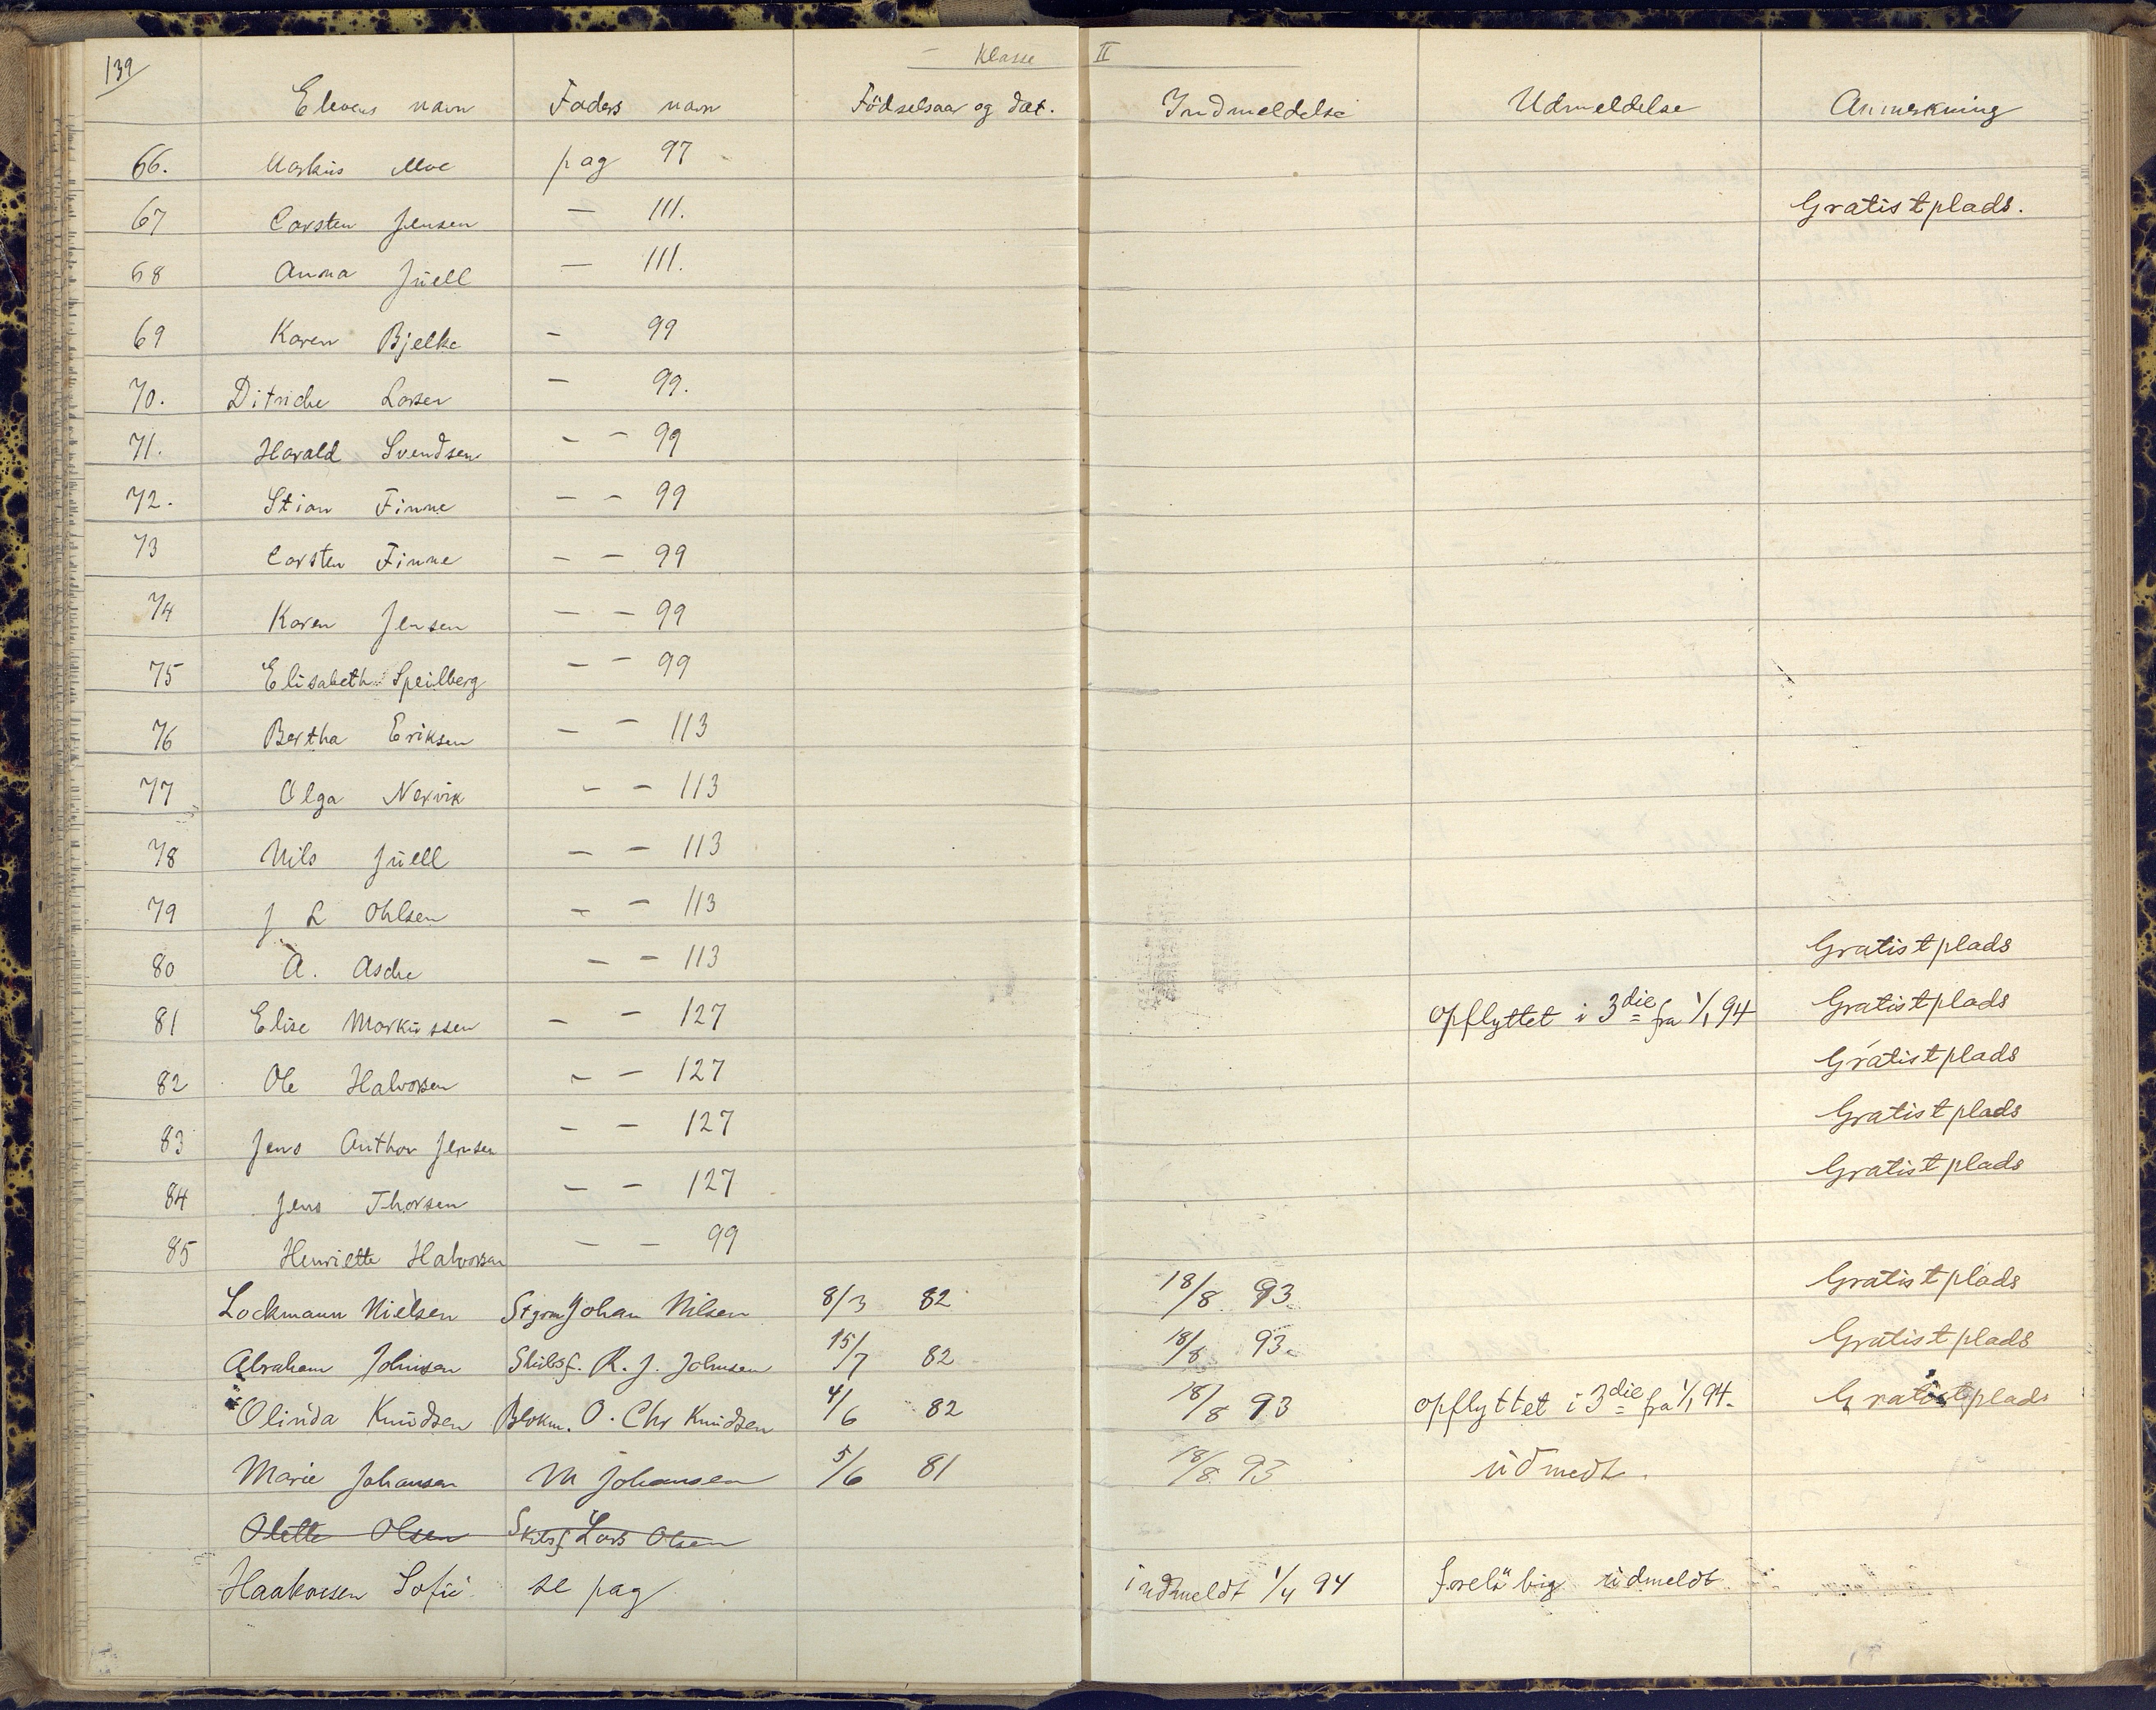 139
Klasse II
Elevens navn Faders navn Födselsaar og dat. Indmeldelse Udmeldelse Anmerkning
66. Markus Moe pag 97
67 Carsten Jensen — 111. Gratistplads.
68 Anna Juell — 111.
69 Karen Bjelke - 99
70. Ditriche Larsen - 99.
71. Harald Svendsen - - 99
72. Stian Finne - - 99
73 Carsten Finne - - 99
74 Karen Jensen - - 99
75 Elisabeth Speilberg - - 99
76 Bertha Eriksen - - 113
77 Olga Nervik - - 113
78 Nils Juell - - 113
79 J L Ohlsen - - 113
80 A. Asche - - 113 Gratistplads
81 Elise Markussen - - 127 opflyttet i 3die fra 1/1 94 Gratistplads
82 Ole Halvorsen - - 127 Gratistplads
83 Jens Anthon Jensen - - 127 Gratistplads
84 Jens Thorsen - - 127 Gratistplads
85 Henriette Halvorsen - - 99
Lockmann Nielsen Stgrm Johan Nilsen 8/3 82 18/8 93. Gratistplads
Abraham Johnsen Skibsf. R. J. Johnsen 15/7 82 18/8 93. Gratistplads
Olinda Knudsen Blokm. O. Chr Knudsen 4/6 82 18/8 93 opflyttet i 3die fra 1/1 94. Gratistplads
Marie Johansen M Johansen 5/6 81 18/8 93 udmedt.
Olette Olsen Skibsf Lars Olsen
Haakonsen Sofie se pag indmeldt 1/4 94 foreløbig udmeldt